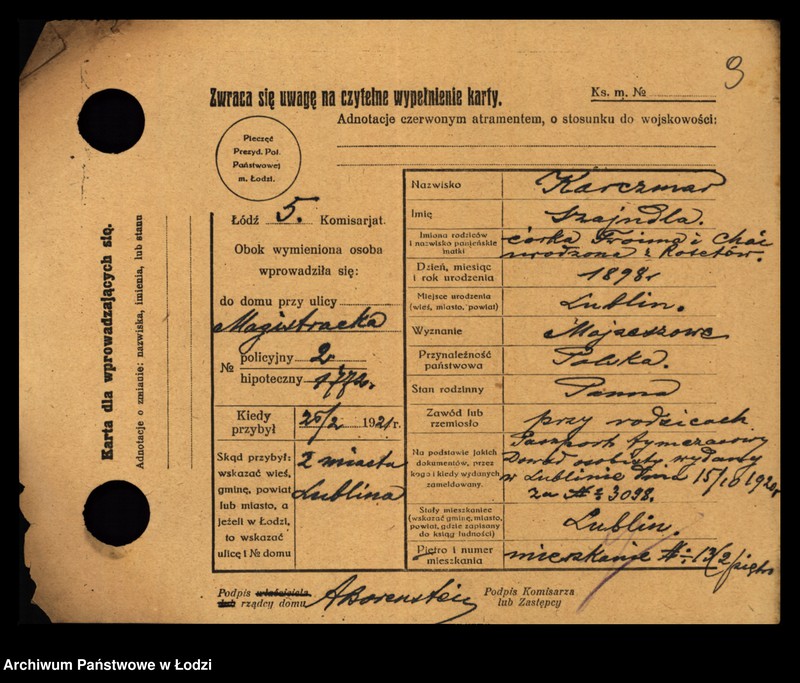 9
Zwraca się uwagę na czytelne wypełnienie karty.
Ks. m. №
Adnotacje czerwonym atramentem, o stosunku do wojskowości:
Karta dla wprowadzających się.
Adnotacje o zmianie: nazwiska, imienia, lub stanu
Pieczęć
Prezyd. Pol.
Państwowej
m. Łodzi.
Łódź 5. Komisarjat.
Obok wymieniona osoba
wprowadziła się:
do domu przy ulicy
Magistracka
№ policyjny 2.
hipoteczny 1772.
Kiedy przybył 25/2 1921 r.
Skąd przybył:
wskazać wieś,
gminę, powiat
lub miasto, a
jeżeli w Łodzi,
to wskazać
ulicę i № domu
z miasta
Lublina
Nazwisko Karczmar
Imię Szajndla.
Imiona rodziców
i nazwisko panieńskie
matki
córka Froima i Chai
urodzona z
Dzień, miesiąc
i rok urodzenia
1898 r
Miejsce urodzenia
(wieś, miasto, powiat)
Lublin.
Wyznanie Mojżeszowe
Przynależność
państwowa
Polska.
Stan rodzinny Panna
Zawód lub
rzemiosło
przy rodzicach
Na podstawie jakich
dokumentów, przez
kogo i kiedy wydanych
zameldowany.
Paszport tymczasowy
Dowód osobisty wydany
w Lublinie dnia 15/10 1920 r
za № 3098.
Stały mieszkaniec
(wskazać gminę, miasto,
powiat, gdzie zapisany
do ksiąg ludności)
Lublin.
Piętro i numer
mieszkania
mieszkanie № 13/2 piętro
Podpis właściciela
lub rządcy domu
ABorenstein
Podpis Komisarza
lub Zastępcy
Archiwum Państwowe w Łodzi